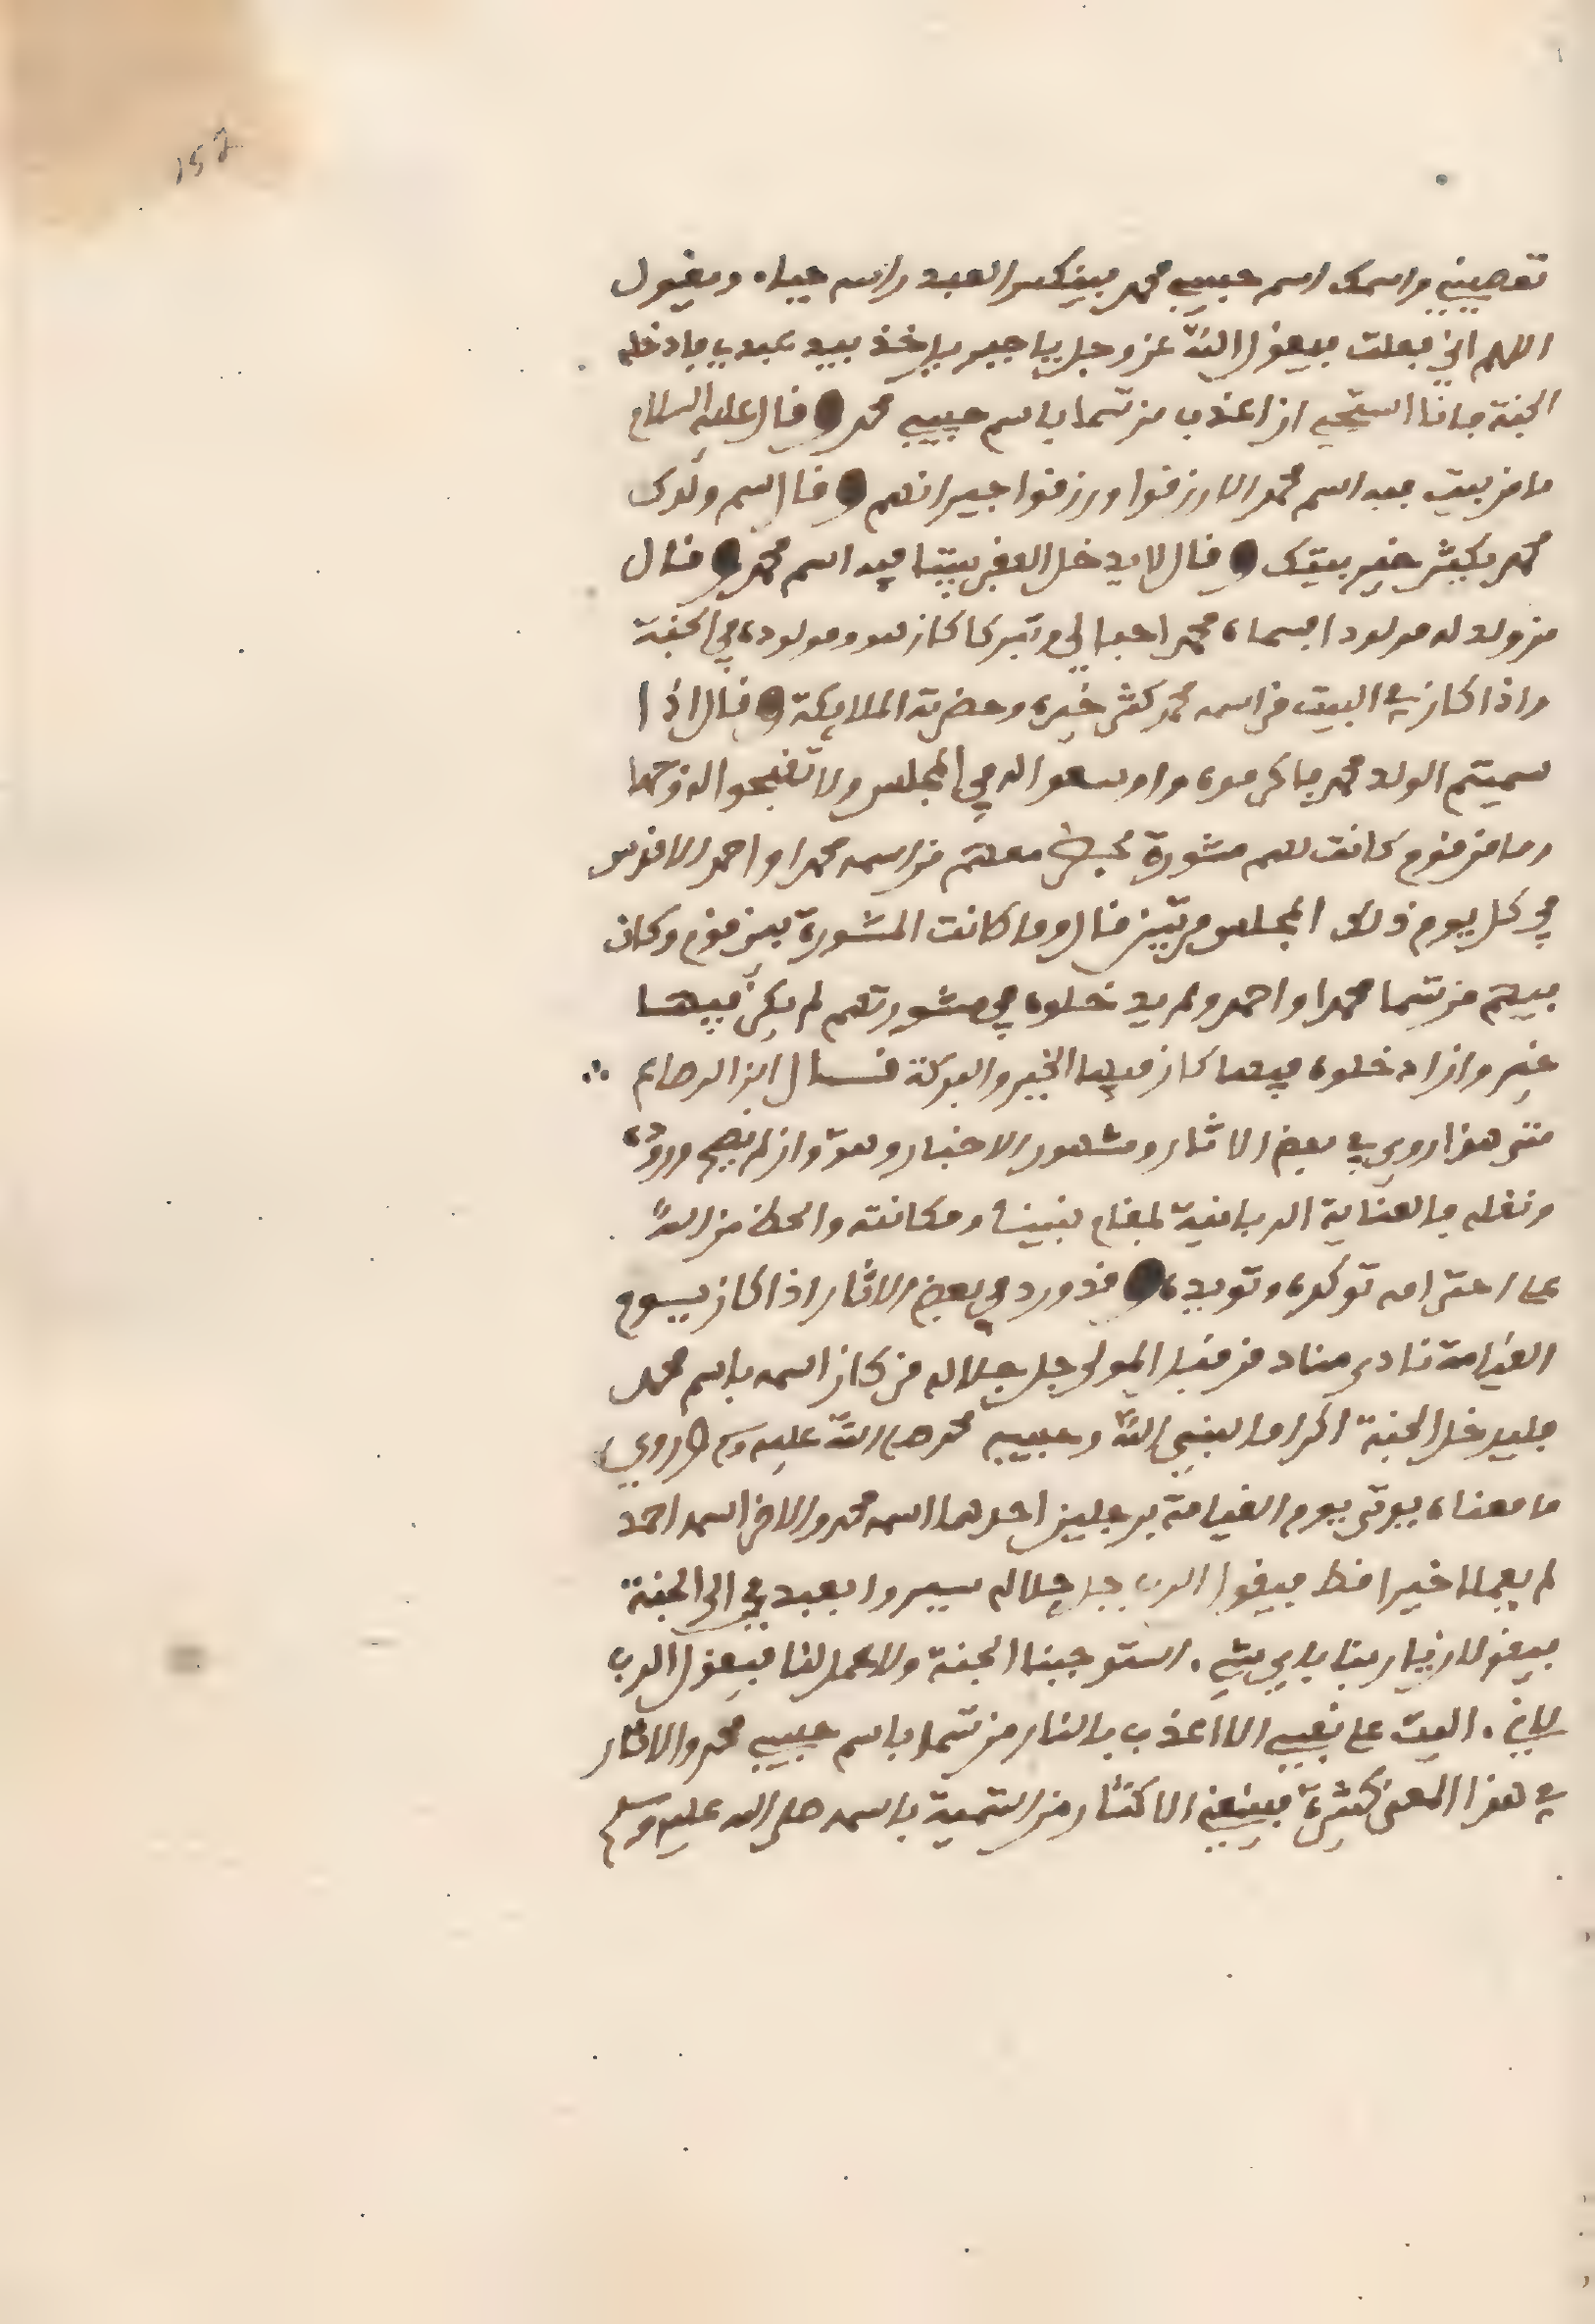 152
تعصيني واسمك اسم حبيبي محمد فينكس العبد راسه حياء ويقول
اللهم اني فعلت فيقول الله عز وجل يا جبريل خذ بيد عبدي فادخله
الجنة فانا استحيي ان اعذب من تسما باسم حبيبي محمد وقال عليه السلام
ما من بيت فيه اسم محمد الا رزقوا ورزقوا جيرانهم وقال اسم ولدك
محمد يكثر خير بيتك وقال لا يدخل الفقر بيتا فيه اسم محمد وقال
من ولد له مولودا فسماه محمد احبا لي وتبركا كان هو ومولوده في الجنة
واذا كان في البيت من اسمه محمد كثر خيره وحضرته الملايكة وقال اذا
سميتم الولد محمد فاكرموه واوسعوا له في المجلس ولا تقبحوا له وجها
وما من قوم كانت لهم مشورة فحضر معهم من اسمه محمد او احمد الا قدس
في كل يوم ذلك المجلس مرتين قال وما كانت المشورة بين قوم وكان
فيهم من تسما محمدا او احمد ولم يدخلوه في مشورتهم لم يكن فيها
خير وان ادخلوه فيها كان فيها الخير والبركة قال ابن الرصاع
مثل هذا روي في بعض الاثار ومشهور الاخبار وهو وان لم يصح وروده
ونقله فالعناية الربانية لمقام نبينا ومكانته والحظ من الله
على احترامه توكده وتويده وقد ورد في بعض الاثار اذا كان يوم
القيامة نادى مناد من قبل المولى جل جلاله من كان اسمه باسم محمد
فليدخل الجنة اكراما لنبي الله وحبيبه محمد صلى الله عليه وسلم وروي
ما معناه يوتى يوم القيامة برجلين احدهما اسمه محمد والاخر اسمه احمد
لم يعملا خيرا قط فيقول الرب جل جلاله سيروا بعبدي الى الجنة
فيقولان يا ربنا باي شيء استوجبنا الجنة ولا عمل لنا فيقول الرب
لاني اليت على نفسي الا اعذب بالنار من تسما باسم حبيبي محمد والاثار
في هذا المعنى كثيرة فينبغي الاكثار من التسمية باسمه صلى الله عليه وسلم